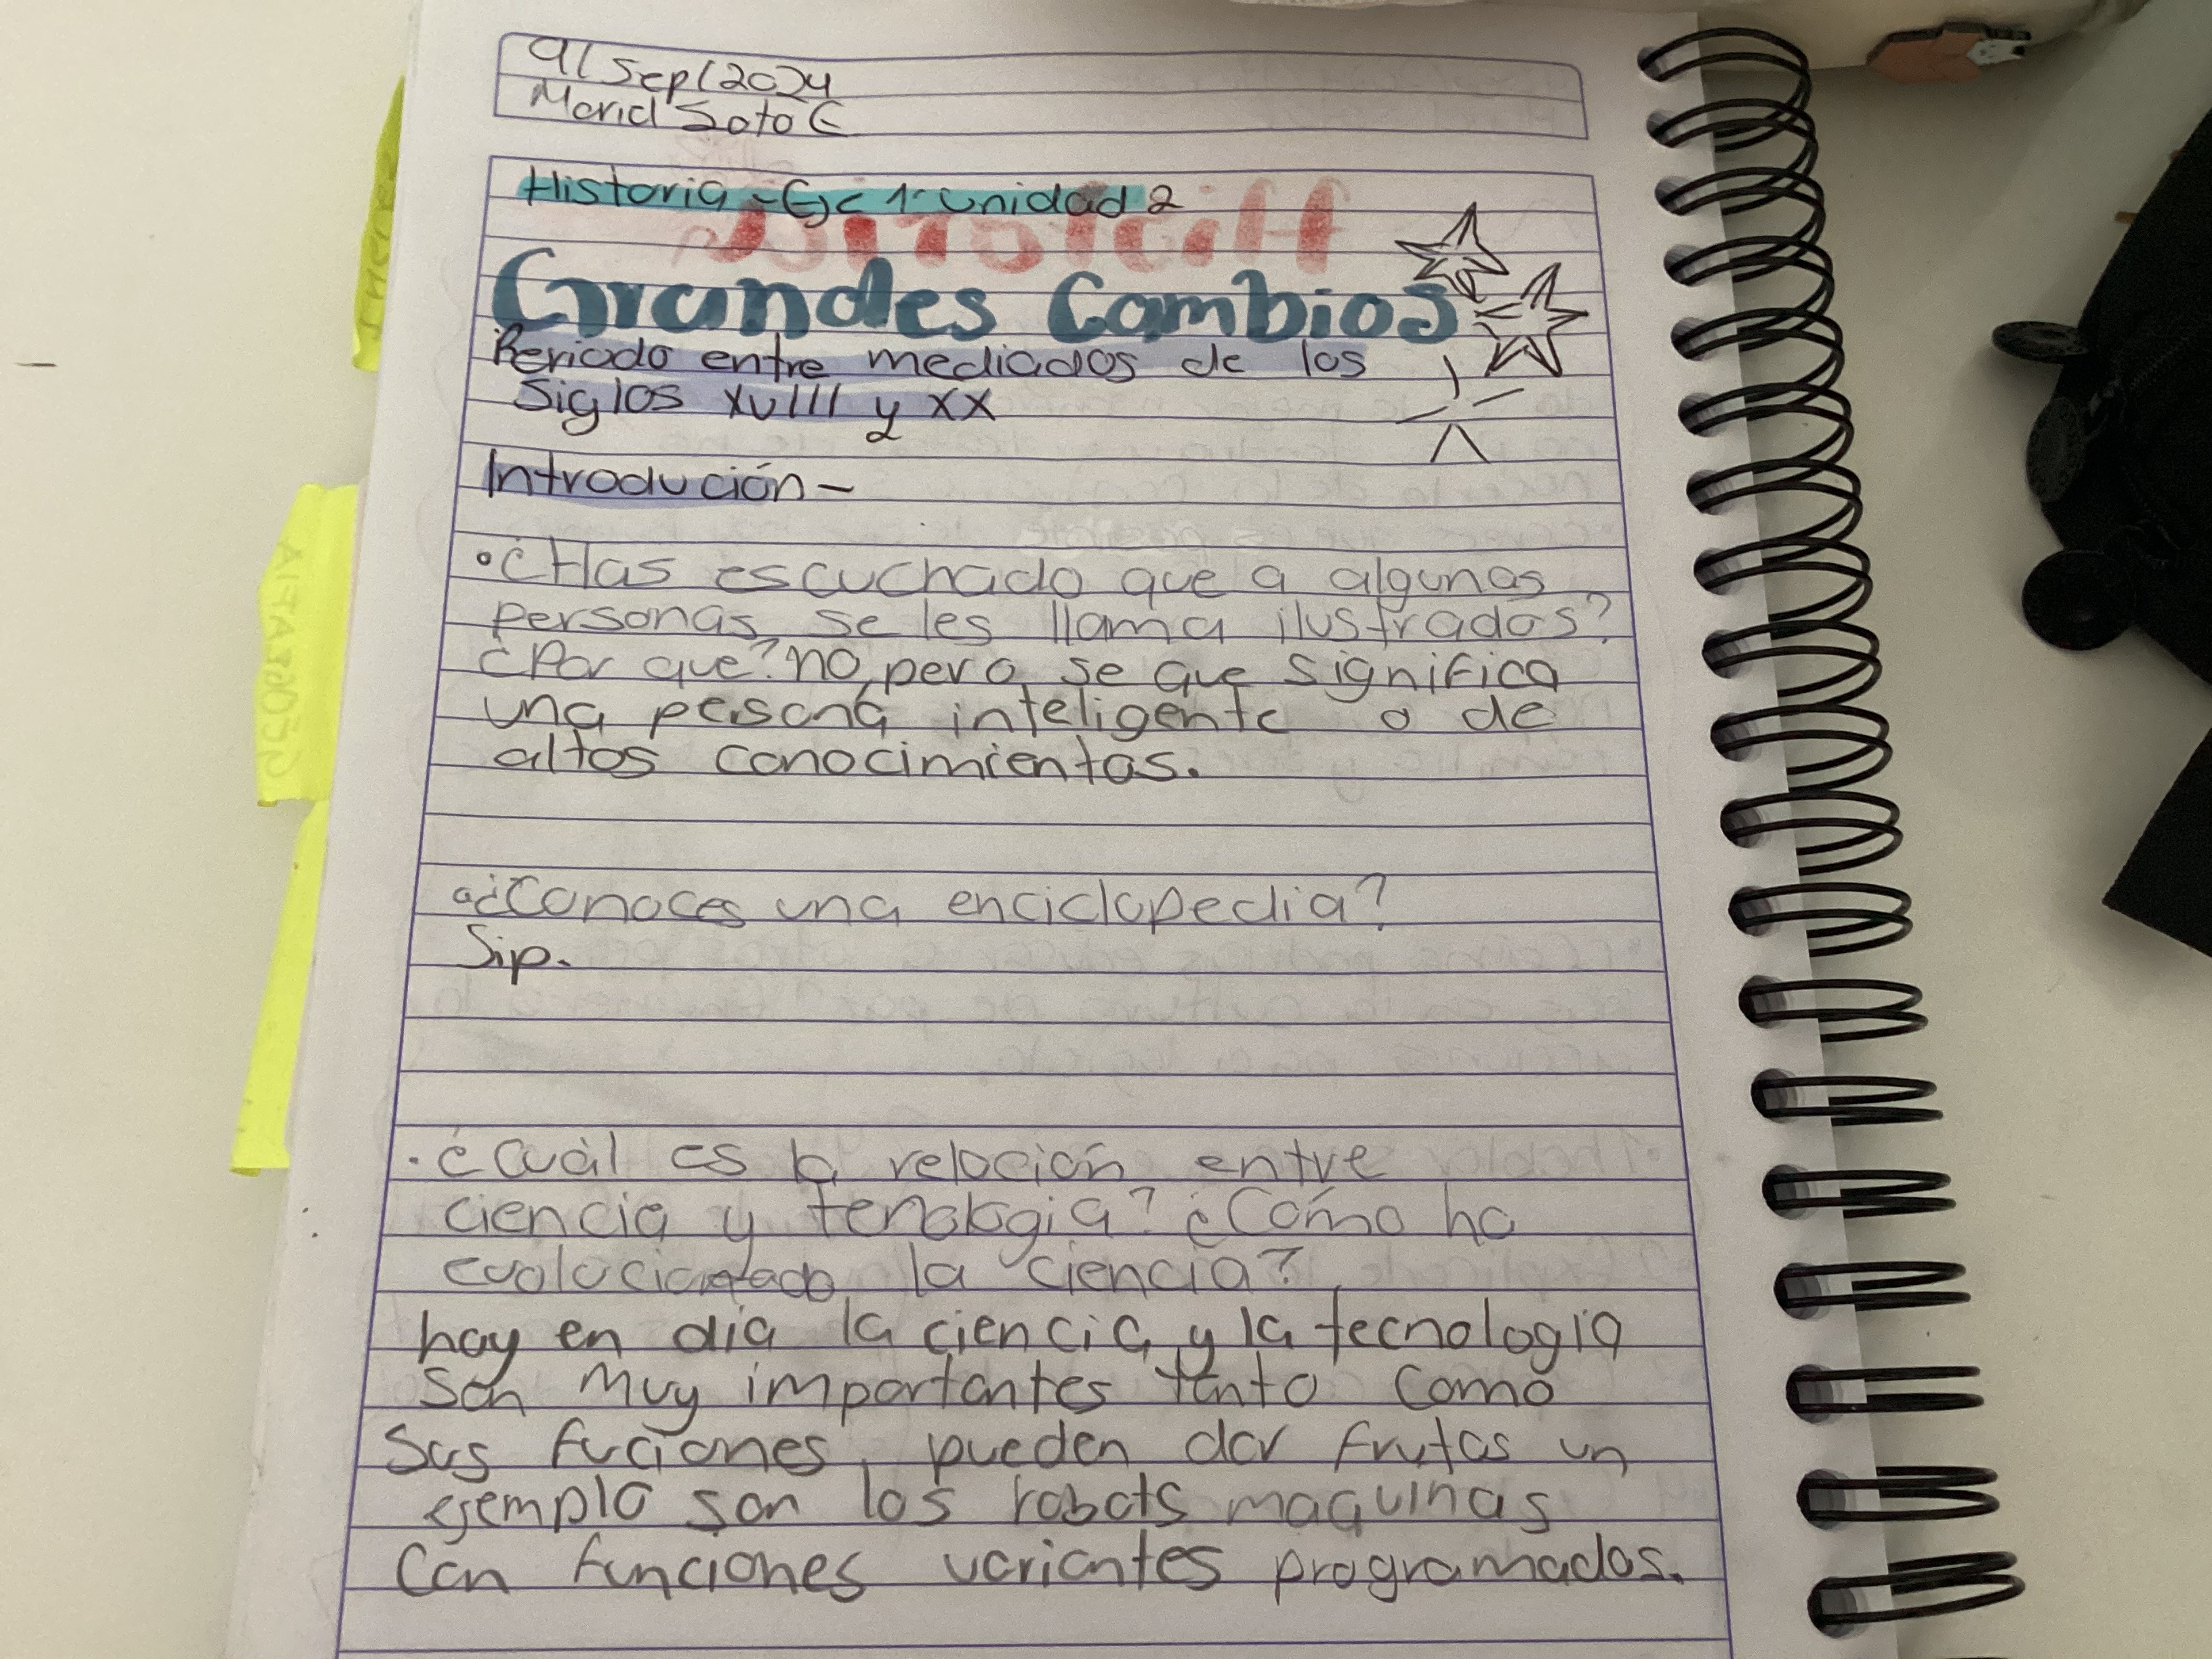 9/Sep/2024
Mariel Soto G
Historia - Ej< 1. unidad 2
Grandes Cambios
Periodo entre mediados de los
Siglos XVIII y XX
Introdución -
• ¿Has escuchado que a algunas
personas se les llama ilustrados?
¿Por que? no, pero se que significa
una persona inteligente o de
altos conocimientos.
• ¿Conoces una enciclopedia?
Sip.
• ¿Cuál es la relación entre
ciencia y tenologia? ¿Cómo ha
evolucionado la ciencia?
hoy en dia la ciencia y la tecnologia
son muy importantes tanto como
sus fuciones, pueden dar frutos un
ejemplo son los robots maquinas
con funciones variantes programados.
Historia
GEOGRAFIA